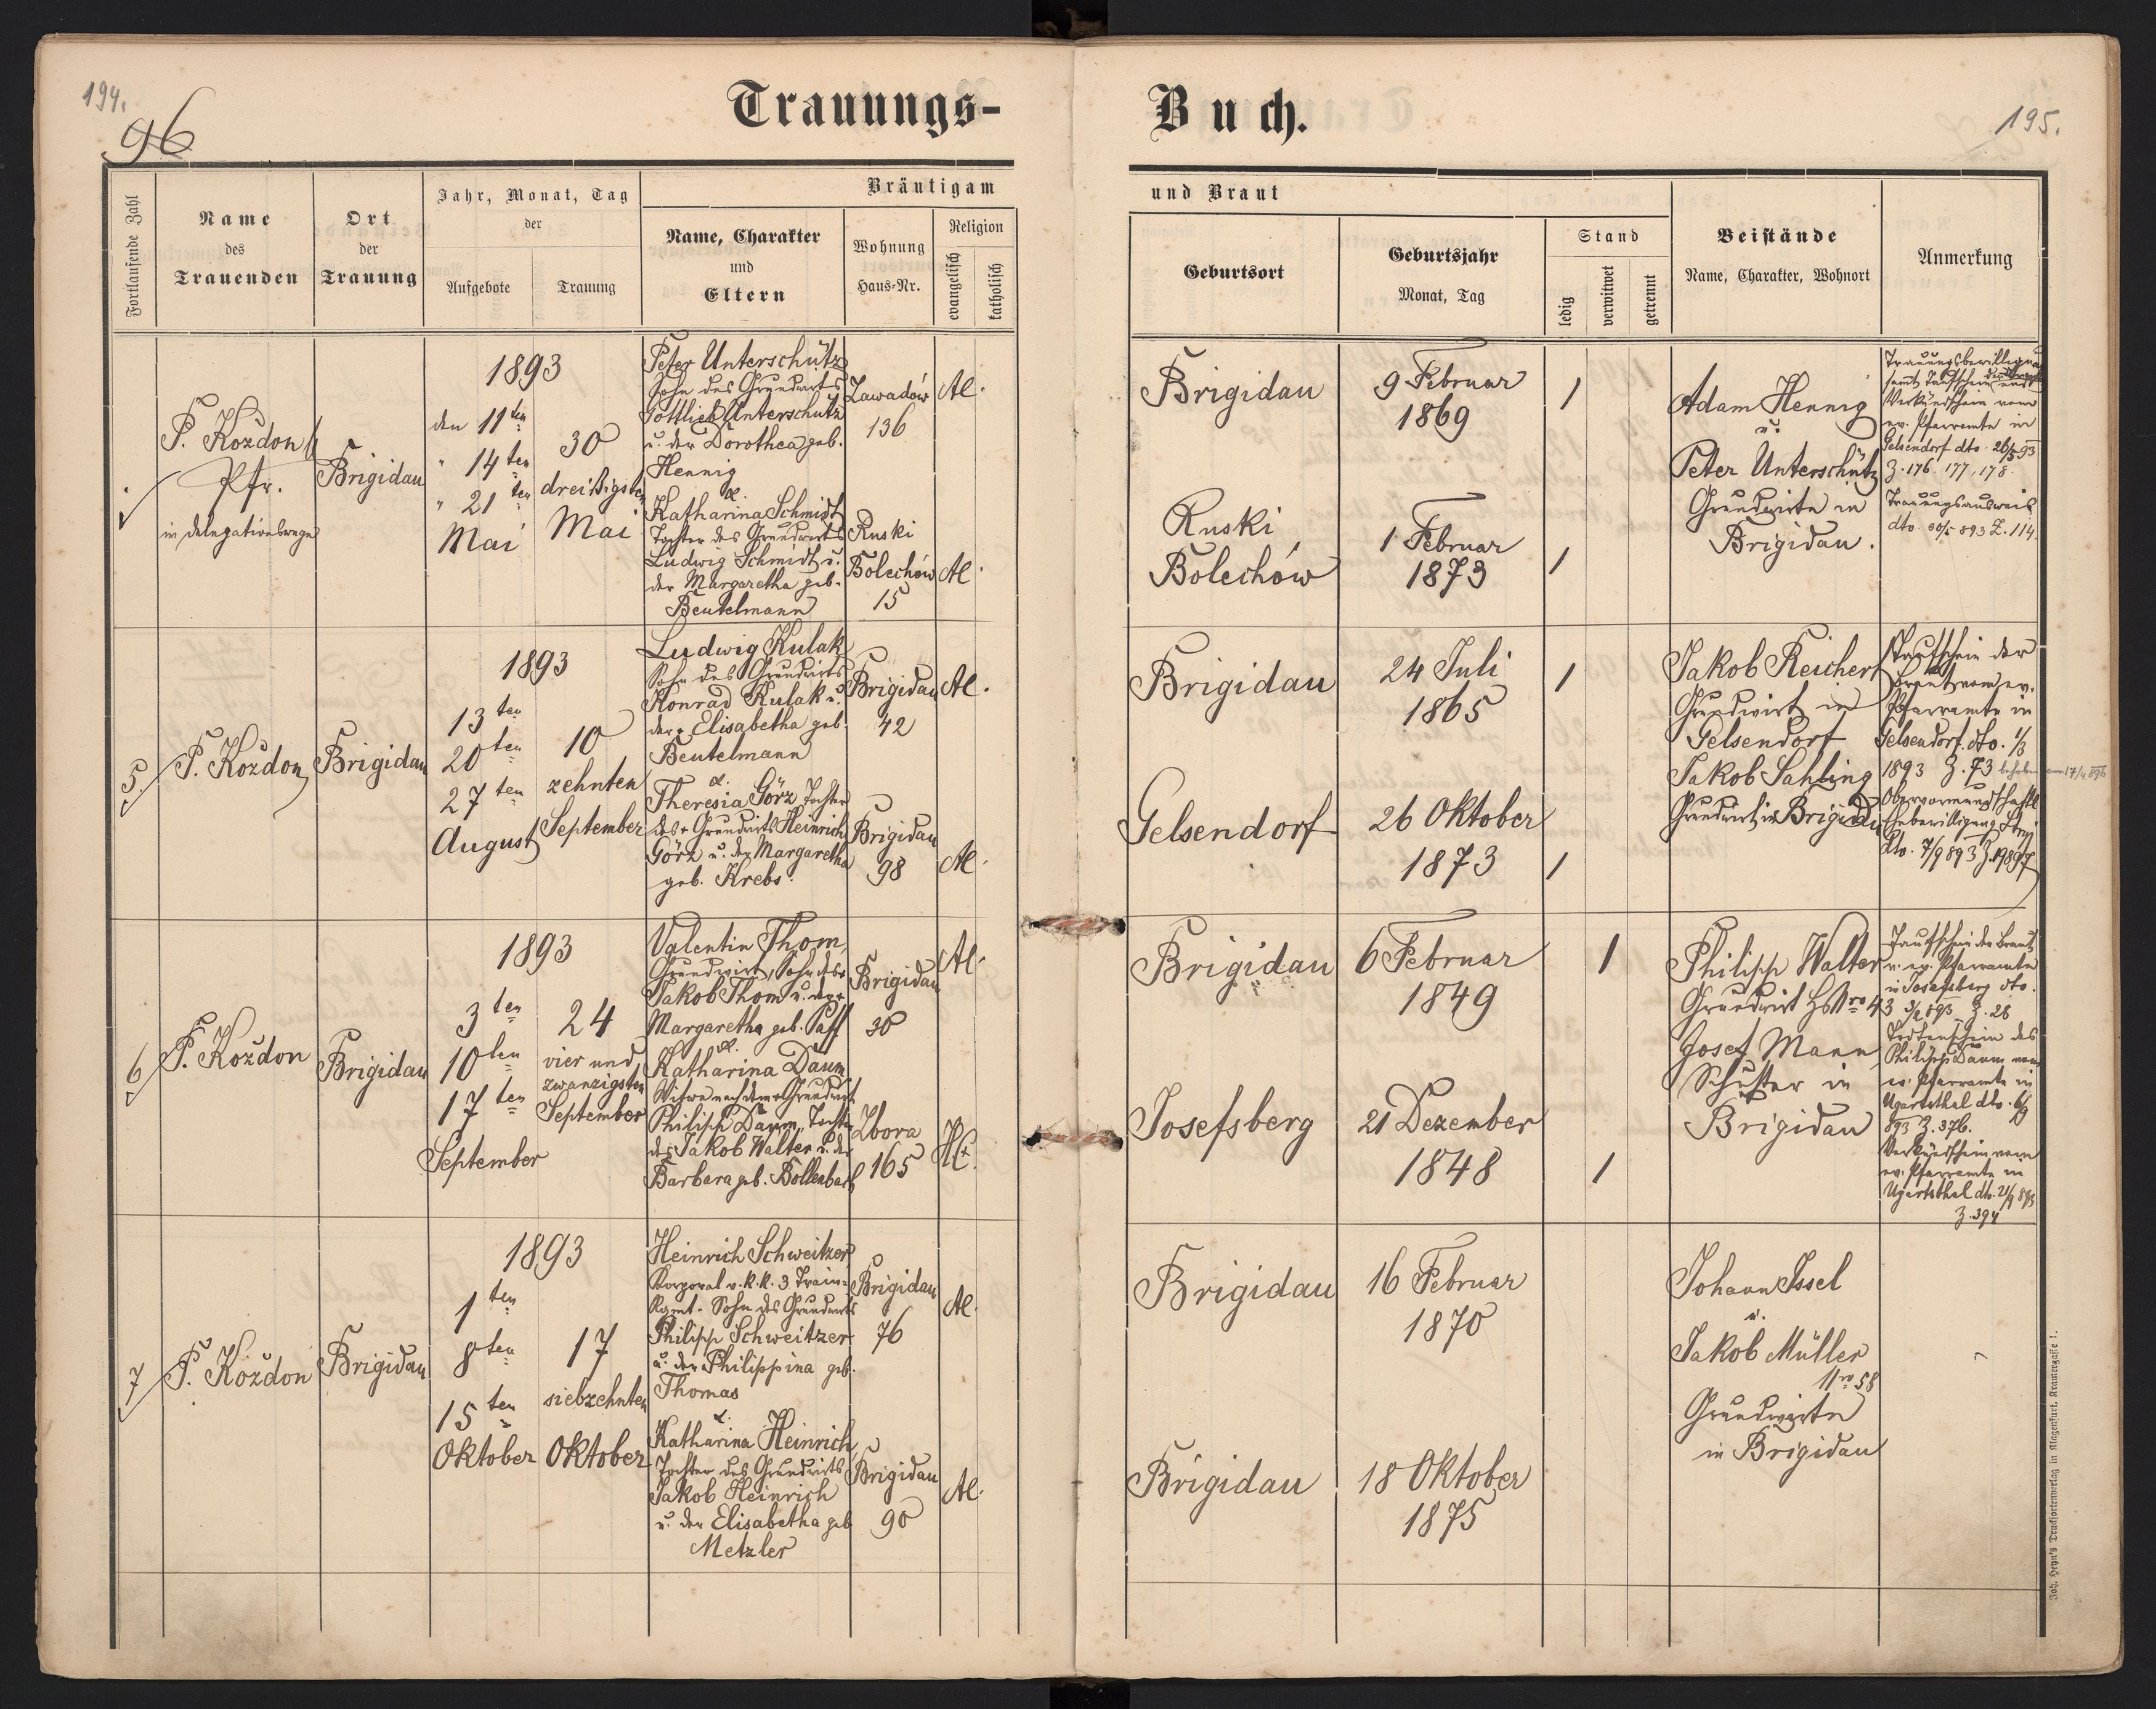 194.
96
Trauungs-
Buch.
195.
Fortlaufende Zahl
Name
des
Trauenden
Ort
der
Trauung
Jahr, Monat, Tag
der
Aufgebote
Trauung
Bräutigam
Name, Charakter
und
Eltern
Wohnung
Haus-Nr.
Religion
evangelisch
katholisch
und Braut
Geburtsort
Geburtsjahr
Monat, Tag
Stand
ledig
verwitwet
getrennt
Beistände
Name, Charakter, Wohnort
Anmerkung
P. Kozdon
Pfr.
in Delegationswege
Brigidau
1893
den 11ten
" 14ten
" 21ten
Mai
30
dreißigsten
Mai
Peter Unterschütz
Sohn des Grundwirts
Gottlieb Unterschütz
u. der Dorothea geb.
Hennig
&.
Katharina Schmidt
Tochter des Grundwirts
Ludwig Schmidt u.
der Margaretha geb.
Beutelmann
Zawadów
136
Ruski
Bolechów
15
Al.
Al.
Brigidau
Ruski
Bolechów
9 Februar
1869
1 Februar
1873
1
1
Adam Hennig
u.
Peter Unterschütz
Grundwirte in
Brigidau.
Trauungsbewilligung
samt Taufschein und
Verkündschein vom
ev. Pfarramte in
Gelsendorf dto. 26/5 93
Z. 176. 177, 178.
Trauungsausweis
dto. 30/5 893 Z. 114.
5.
P. Kozdon
Brigidau
1893
13ten
20ten
27ten
August
10
zehnten
September
Ludwig Kulak
Sohn des Grundwirts
Konrad Kulak u.
der + Elisabetha geb.
Beutelmann
&.
Theresia Görz Tochter
des + Grundwirts Heinrich
Görz u. der Margaretha
geb. Krebs.
Brigidau
42
Brigidau
98
Al.
Al.
Brigidau
Gelsendorf
24 Juli
1865
26 Oktober
1873
1
1
Jakob Reichert
Grundwirt in
Gelsendorf
Jakob Sahling
Grundwirt in Brigidau
Taufschein der
Braut vom ev.
Pfarramte in
Gelsendorf dto. 1/3
1893 Z. 73 behoben am 17/4 896
Obervormundschaftl.
Ehebewilligung Stryj
dto. 7/9 893 Z. 19897
6
P. Kozdon
Brigidau
1893
3ten
10ten
17ten
September
24
vier und
zwanzigsten
September
Valentin Thom,
Grundwirt, Sohn des +
Jakob Thom u. der +
Margaretha geb. Paff
&.
Katharina Daum,
Witwe nach dem + Grundwirt
Philipp Daum, Tochter
des Jakob Walter u. der
Barbara geb. Bollenbach
Brigidau
30
Zbora
165
Al.
HC.
Brigidau
Josefsberg
6 Februar
1849
21 Dezember
1848
1
1
Philipp Walter
Grundwirt HsNro 43
Josef Mann
Schuster in
Brigidau
Taufschein der Braut
v. ev. Pfarramte
in Josefsberg dto.
3/2 893 Z. 28
Todtenschein des
Philipp Daum vom
ev. Pfarramte in
Ugartsthal dto. 6/9
893 Z. 376.
Verkündschein vom
ev. Pfarramte in
Ugartsthal dto. 21/9 893
Z. 394
7
P. Kozdon
Brigidau
1893
1ten
8ten
15ten
Oktober
17
siebzehnten
Oktober
Heinrich Schweitzer
Korporal v. k.k. 3 Train-
Rgmt. Sohn des Grundwirts
Philipp Schweitzer
u. der Philippina geb.
Thomas
&.
Katharina Heinrich
Tochter des Grundwirts
Jakob Heinrich
u. der Elisabetha geb.
Metzler
Brigidau
76
Brigidau
90
Al.
Al.
Brigidau
Brigidau
16 Februar
1870
18 Oktober
1875
Johann Issel
u.
Jakob Müller
Nro 58
Grundwirte
in Brigidau
Joh. Heyn's Drucksortenverlag in Klagenfurt, Kramergasse 1.